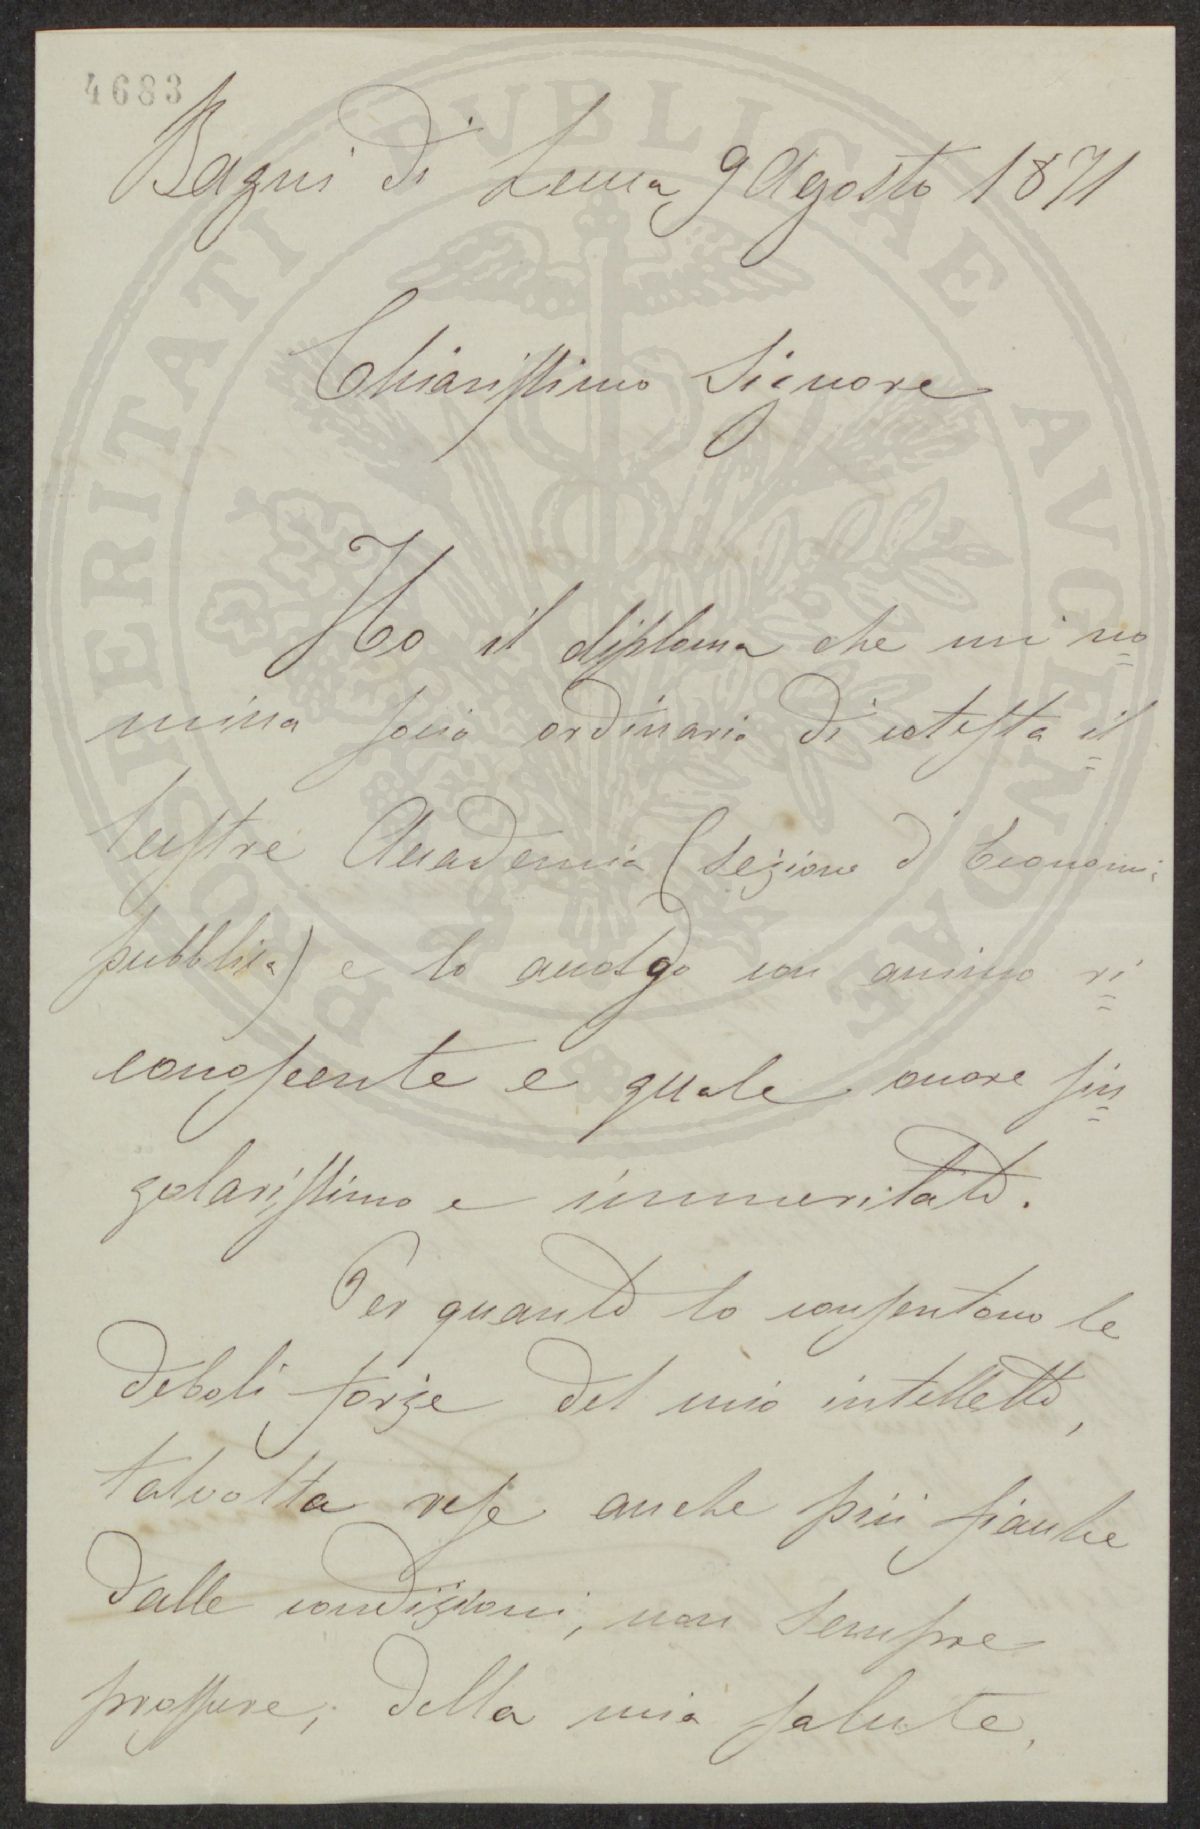 4683
Bagni di Lucca, 9 Agosto 1871
Chiarissimo Signore
Ho il diploma che mi no=
mina socio ordinario di cotesta il=
lustre Accademia (Sezione d' Economia
pubblica) e lo accolgo con animo ri=
conoscente e quale onore sin=
golarissimo e immeritato.
Per quanto lo consentono le
deboli forze del mio intelletto,
talvolta rese anche più fiacche
dalle condizioni, non sempre
prospere, della mia salute,
PROSPERITATI PVBLICAE AVGENDAE